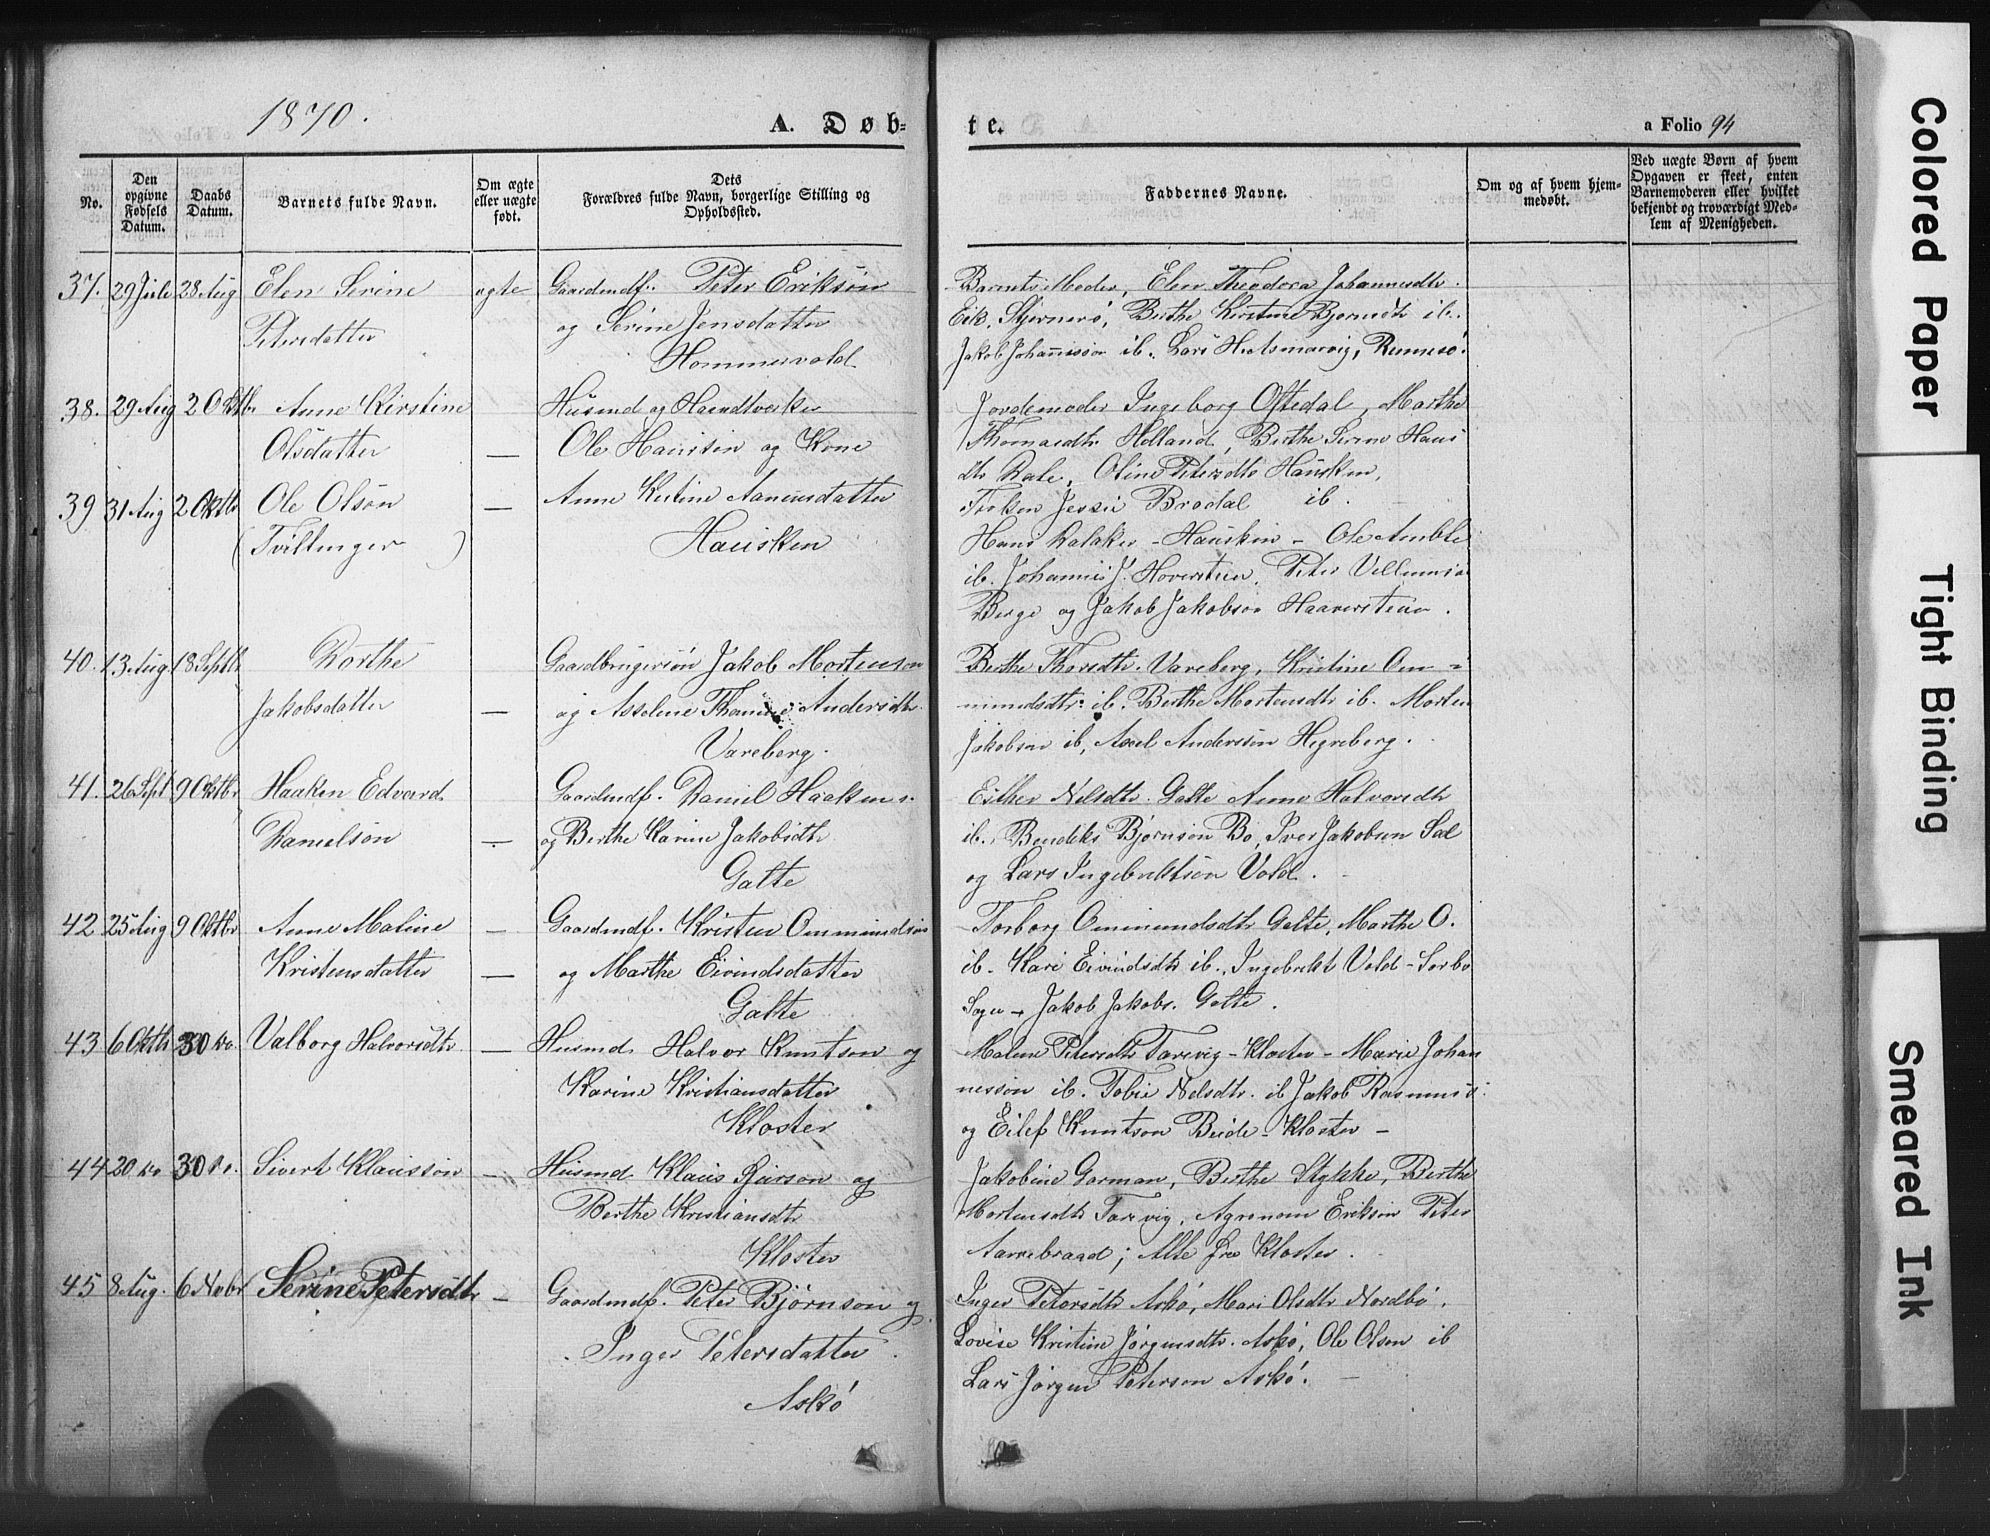 1870.
A. Døb-
te.
a Folio 94
No.
Den opgivne Fødsels Datum.
Daabs Datum.
Barnets fulde Navn.
Om ægte eller uægte født.
Dets Forældres fulde Navn, borgerlige Stilling og Opholdssted.
Faddernes Navne.
Om og af hvem hjemmedøbt.
Ved uægte Børn af hvem
Opgaven er skeet, enten
Barnemoderen eller hvilket
bekjendt og troværdigt Med-
lem af Menigheden.
37. 29 Juli 28 Aug Elen Serine ægte Gaardmdf. Peter Erikson
Petersdatter og Serine Jensdatter
Hommersvold
Barnets Moder, Elen Theodora Johannesdtr.
Eik, Stjernerö, Berthe Kirstine Bjornsdtr ib.
Jakob Johannesson ib. Lars H. Asmarvig, Rennesö.
38. 29 Aug 2 Oktb. Anne Kirstine Husmd og Haandverker
Olsdatter — Ole Hansen og Kone
39 31 Aug 2 Oktbr Ole Olson — Anne Kirstine Aanensdatter
(Tvillinger) Hausken
Jordemoder Ingeborg Oftedal, Marthe
Thomasdtr Helland, Berthe Serine Hans
dtr Dale, Oline Petersdtr Hausken,
Frøken Jessie Brodal ib.
Hans Dalaker - Hausken - Ole Amble
ib. Johannes J. Hoverstein, Peter Villumsen
Berge og Jakob Jakobson Haaverstein.
40. 13 Aug 18 Septb Dorthe Gaardbrugersøn Jakob Mortenson
Jakobsdatter — og Asseline Thomine Andersdtr.
Vareberg.
Berthe Thorsdtr. Vareberg, Kristine Om-
mundsdtr. ib. Berthe Mortensdtr ib. Morten
Jakobsen ib, Axel Anderssön Hegreberg.
41. 26 Sept 9 Oktbr Haaken Edvard Gaardmdf. Daniel Haakens.
Danielsön — og Berthe Karine Jakobsdtr
Galte
Esther Nelsdtr. Galte Anne Halvorsdtr
ib., Bendiks Bjørnson Bo, Iver Jakobsen Sæl
og Lars Ingebriktsen Vold.
42 25 Aug 9 Oktbr Anne Maline — Gaardmdf. Kristen Ommundsön
Kristensdatter — og Marthe Eivindsdatter
Galte
Torborg Ommundsdtr Galte, Marthe O.
ib. Kari Eivindsdtr ib., Ingebrikt Vold - Sørbo
Sogn - Jakob Jakobs. Galte.
43 6 Oktb 30 do Valborg Halvorsdtr — Husmd. Halvor Knutson og
Karine Kristiansdatter
Kloster
Malene Petersdtr Tarevig - Kloster - Marie Johan
nesson ib. Tobie Nelsdtr. ib Jakob Rasmuss.
og Eilef Knutson Beide - Kloster -
44 20 do 30 do. Sivert Klausson — Husmd Klaus Sjurson og
Berthe Kristiansdtr
Kloster
Jakobine Garman, Berthe Stykke, Berthe
Mortensdtr Tarevig, Agronom Erikson Peter
Aarrebraad; Alle fra Kloster.
45 8 Aug. 6 Novbr Serine Petersdtr — Gaardmdf. Peter Björnson og
Inger Petersdatter
Askö
Inger Petersdtr Askö, Mari Olsdtr Nordbö,
Lovise Kristine Jørgensdtr. Askö, Ole Olsen ib
Lars Jörgen Peterson Askö.
Colored Paper
Tight Binding
Smeared Ink